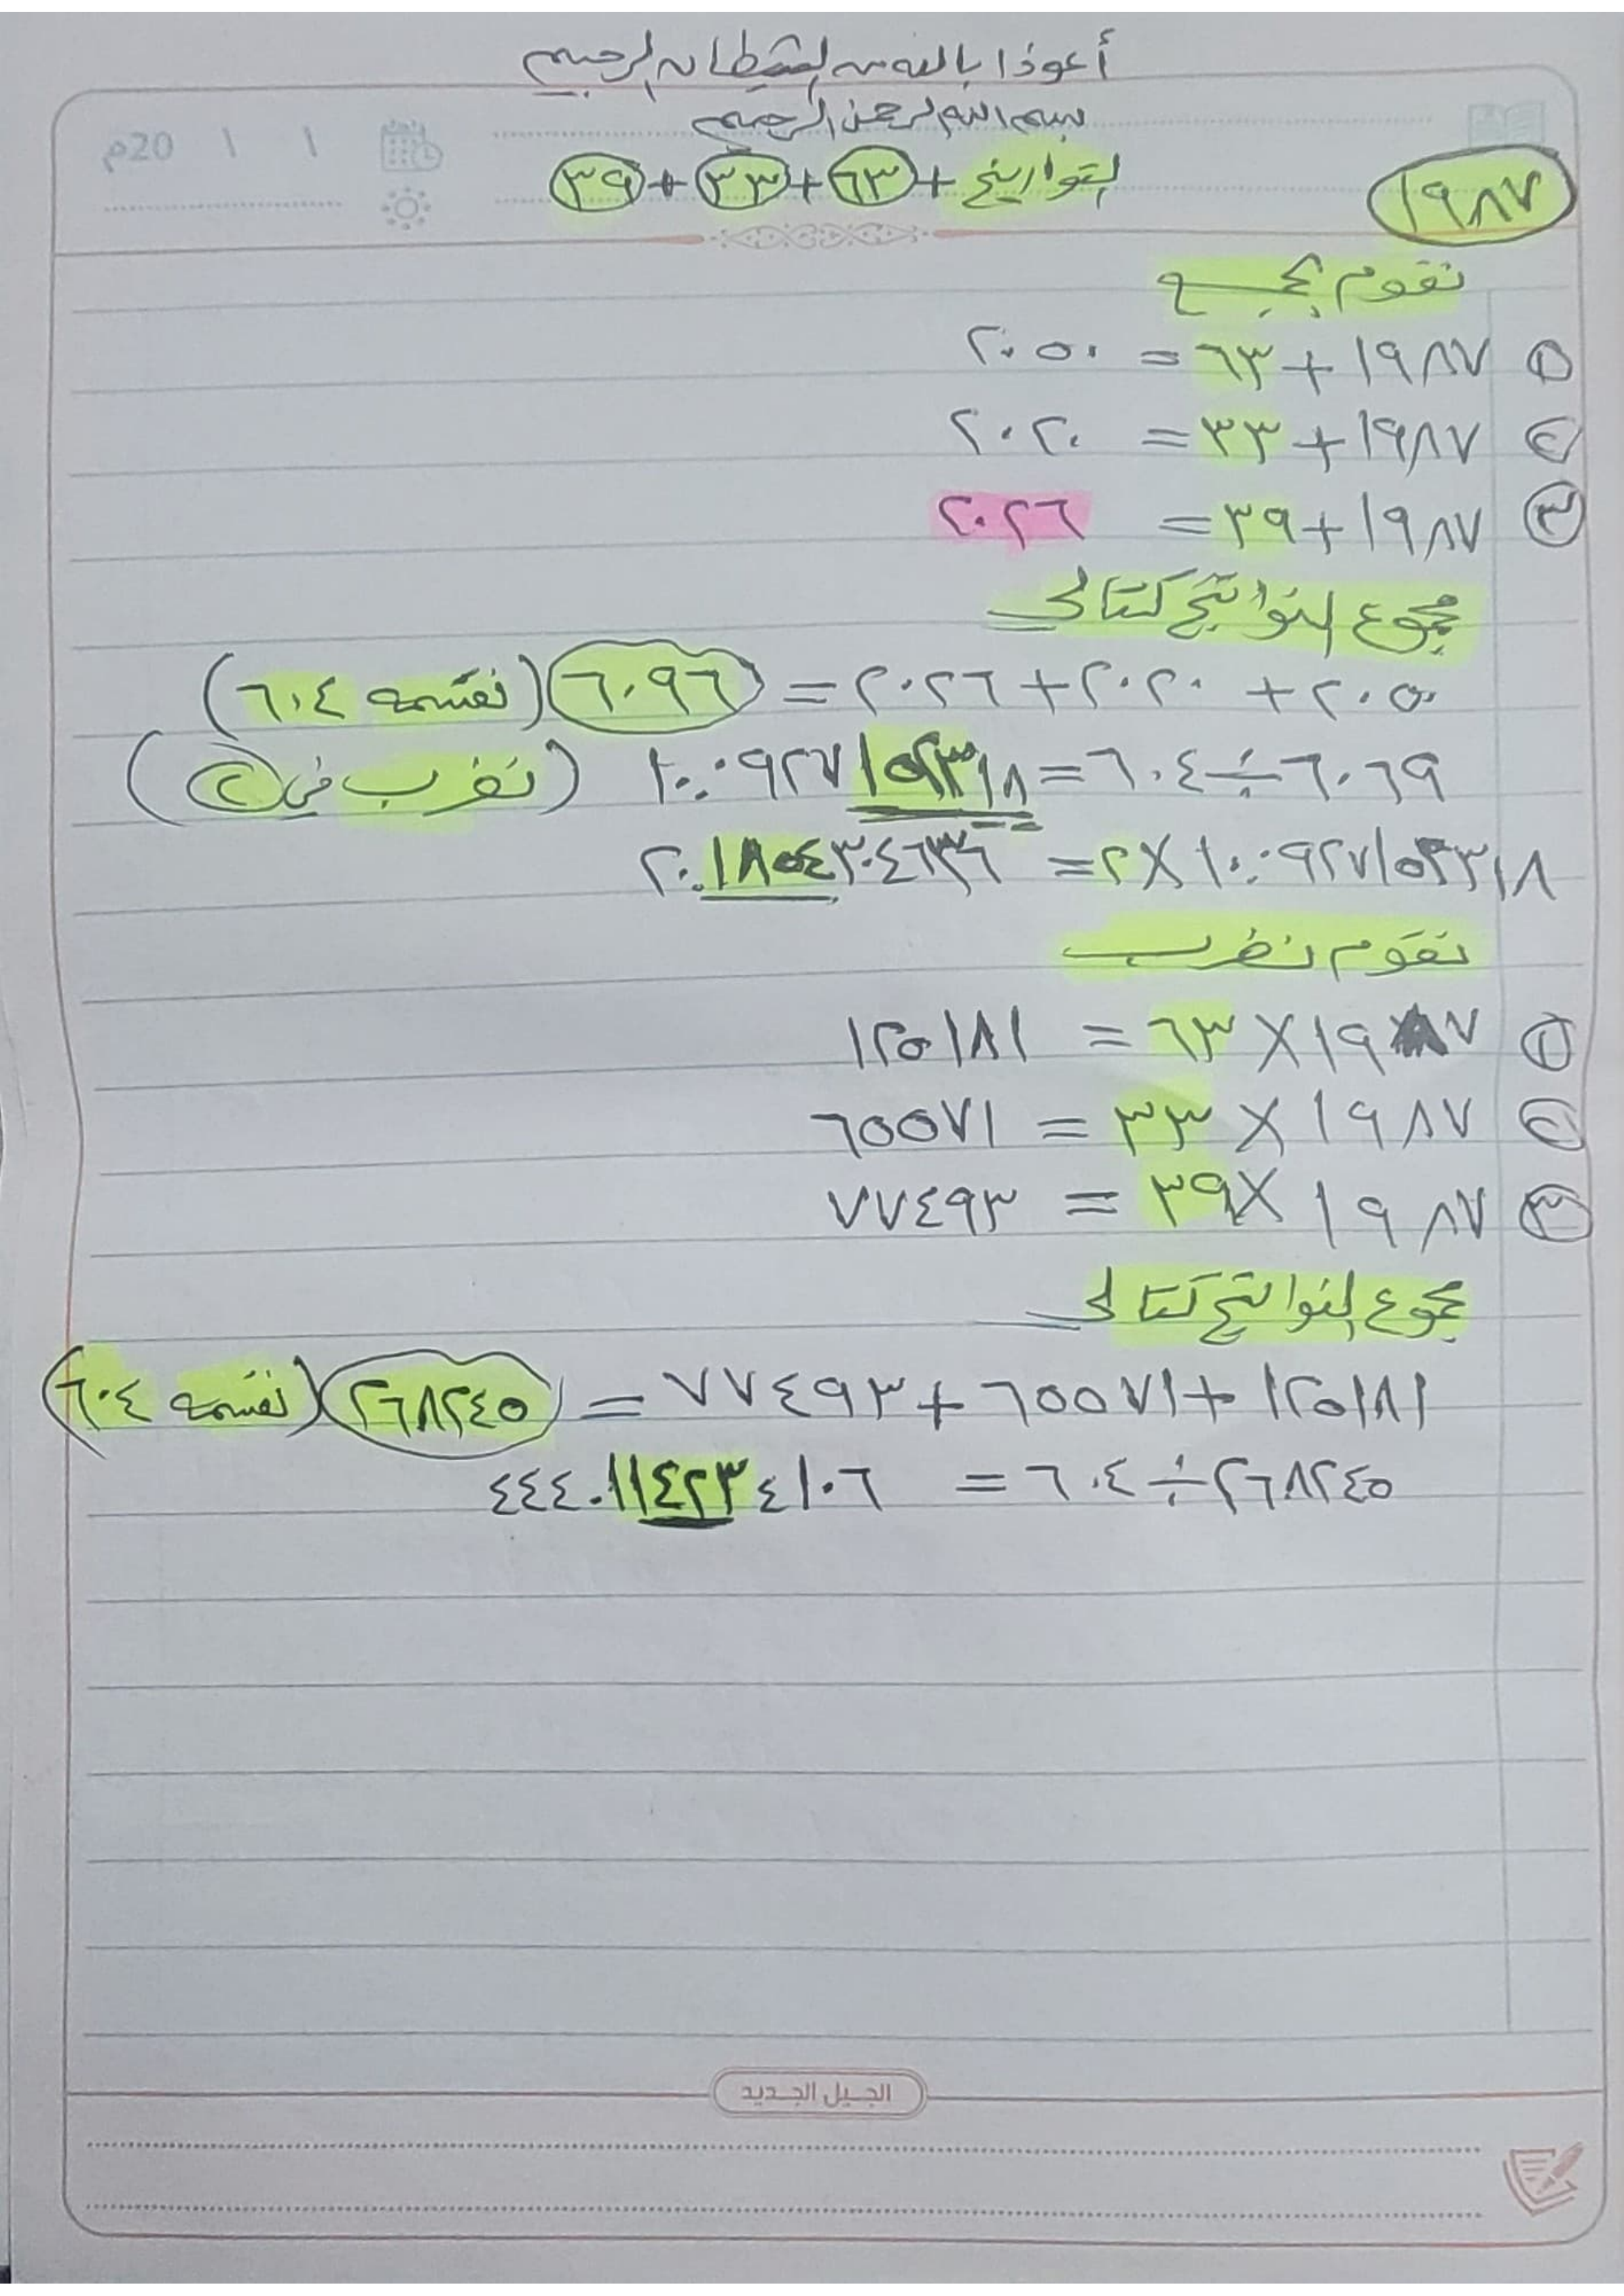 أعوذا بالله من الشيطان الرجيم
بسم الله الرحمن الرحيم
20م / /
١٩٨٧
التواريخ + ٦٣ + ٣٣ + ٣٩
نقوم بجمع
١ ١٩٨٧ + ٦٣ = ٢٠٥٠
٢ ١٩٨٧ + ٣٣ = ٢٠٢٠
٣ ١٩٨٧ + ٣٩ = ٢٠٢٦
مجموع النواتج كتالي
٢٠٥٠ + ٢٠٢٠ + ٢٠٢٦ = ٦٠٩٦ (نقسمه ٦٠٤)
٦٠٦٩ ÷ ٦٠٤ = ١٠.٠٩٢٧١٥٢٣١٨ (نضرب في ٢)
١٠.٠٩٢٧١٥٢٣١٨ × ٢ = ٢٠.١٨٥٤٣٠٤٦٣٦
نقوم نضرب
١ ١٩٨٧ × ٦٣ = ١٢٥١٨١
٢ ١٩٨٧ × ٣٣ = ٦٥٥٧١
٣ ١٩٨٧ × ٣٩ = ٧٧٤٩٣
مجموع النواتج كتالي
١٢٥١٨١ + ٦٥٥٧١ + ٧٧٤٩٣ = ٢٦٨٢٤٥ (نقسمه ٦٠٤)
٢٦٨٢٤٥ ÷ ٦٠٤ = ٤٤٤.١١٤٢٣٤١٠٦
الجيل الجديد